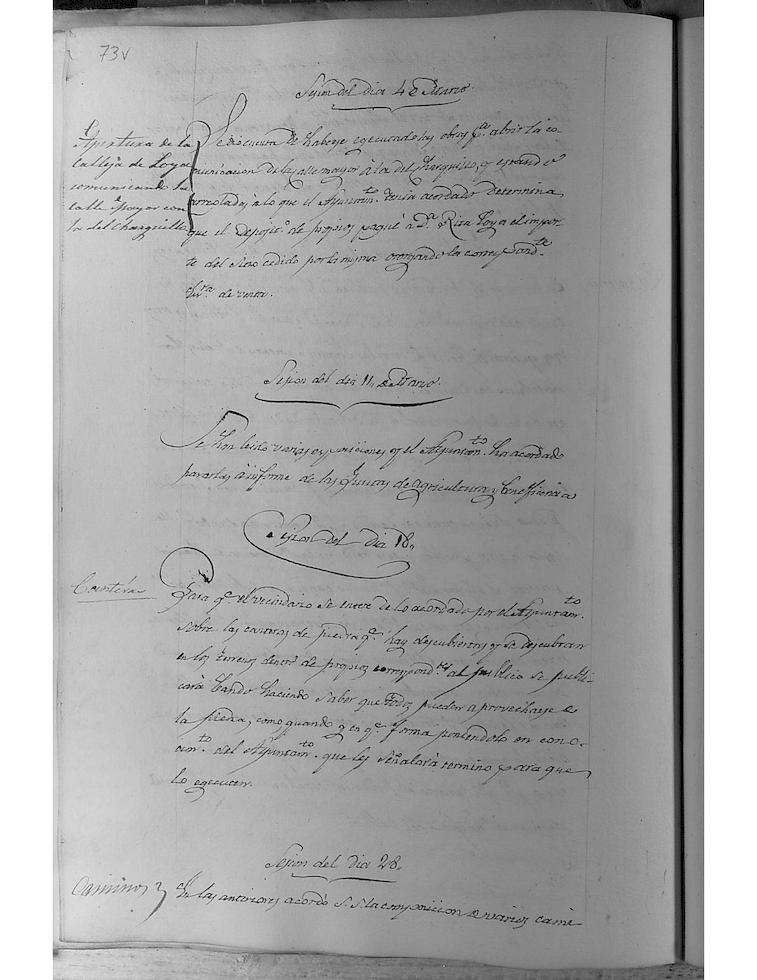 73v
Sesion del dia 4 de Marzo
Apertura de la
calleja de Loya
comunicando la
calle mayor con
la del Charquillo
Se dio cuenta de haberse egecutado las obras pª. abrir la co-
municacion de la calle mayor à la del Charquillo, y estando
arreglada à lo que el Ayuntamto. tenia acordado determina
que el Deposito. de propios pague à Dª. Rita Loya el impor-
te del sitio cedido por la misma otorgando la correspondte.
Escra. de venta.
Sesion del dia 11 de Marzo.
Se han leido varias esposiciones q el Ayuntamto. ha acordado
pasarlas à informe de las Juntas de agricultura y Beneficencia
Sesion del dia 18
Cantéras
Para qe. el vecindario se entere de lo acordado por el Ayuntamto.
sobre las canteras de piedra qe. hay descubiertas y se descubran
en los terrenos dentro de propios correspondtes. al publico se publi-
carà Bando haciendo saber que todos pueden aprovecharse de
la piedra, como quando y en qe. forma poniendolo en cono-
cimto. del Ayuntamto. que les señalarà termino para que
lo egecuten.
Sesion del dia 28
Caminos
En las anteriores acordò S.S. la composicion de varios cami-